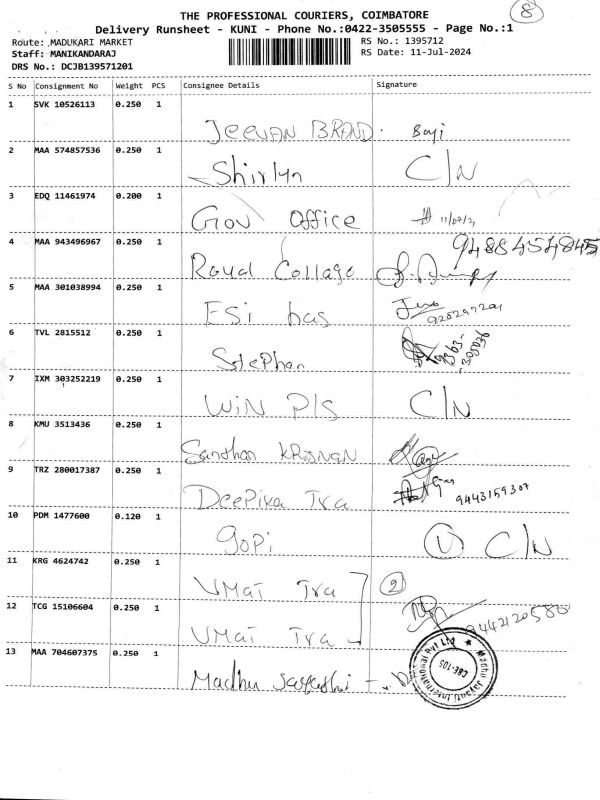 8
THE PROFESSIONAL COURIERS, COIMBATORE
Delivery Runsheet - KUNI - Phone No.:0422-3505555 - Page No.:1
Route: ,MADUKARI MARKET
RS No.: 1395712
Staff: MANIKANDARAJ
RS Date: 11-Jul-2024
DRS No.: DCJB139571201
S No Consignment No Weight PCS Consignee Details Signature
1 SVK 10526113 0.250 1
JEEVAN BRAND.
2 MAA 574857536 0.250 1
Shirlyn C/N
3 EDQ 11461974 0.200 1
Gov Office
4 MAA 943496967 0.250 1 9488454845
Royal Collage
5 MAA 301038994 0.250 1
ESi has
6 TVL 2815512 0.250 1
Stephan
7 IXM 303252219 0.250 1
WiN P/S C/N
8 KMU 3513436 0.250 1
Santhan KRISNAN
9 TRZ 280017387 0.250 1
DeePika Tra 9443159307
10 PDM 1477600 0.120 1
gopi C/N
11 KRG 4624742 0.250 1
VMaT Tra 2
12 TCG 15106604 0.250 1
VMaT Tra
13 MAA 704607375 0.250 1
Madhu Jayanti International Pvt Ltd ★
CBE-105
Madhu